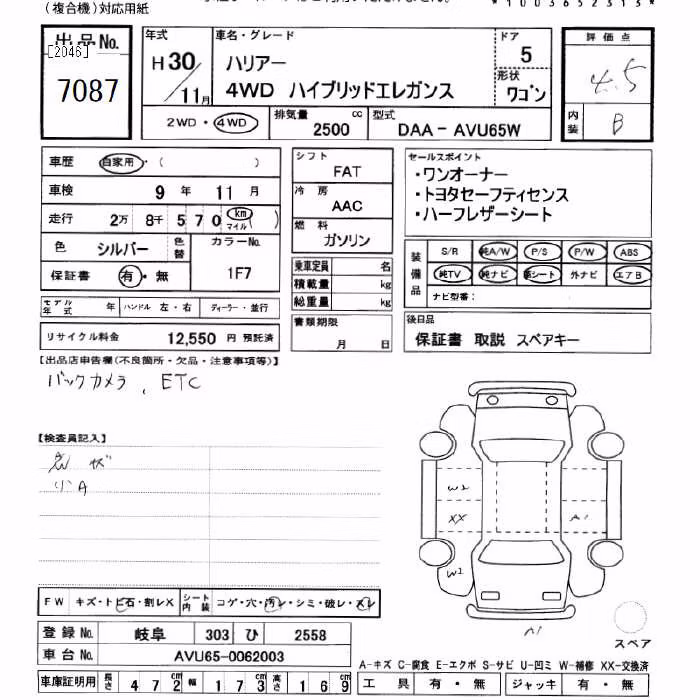 (複合機)対応用紙
*1003652313*
出品No.
[2046]
7087
年式
H30/11月
車名・グレード
ハリアー
4WD ハイブリッドエレガンス
ドア
5
形状
ワゴン
評価点
4.5
内装
B
2WD・4WD
排気量
2500 cc
型式
DAA-AVU65W
車歴 自家用・( )
車検 9年 11月
走行 2万 8千 5 7 0 (km マイル)
色 シルバー 色替
カラーNo.
1F7
保証書 有・無
モデル年式 年 ハンドル 左・右 ディーラー・並行
リサイクル料金 12,550 円 預託済
シフト
FAT
冷房
AAC
燃料
ガソリン
乗車定員 名
積載量 kg
総重量 kg
書類期限
月 日
セールスポイント
・ワンオーナー
・トヨタセーフティセンス
・ハーフレザーシート
装備品
S/R 純A/W P/S P/W ABS
純TV 純ナビ 革シート 外ナビ エアB
ナビ型番:
後日品
保証書 取説 スペアキー
【出品店申告欄(不良箇所・欠品・注意事項等)】
バックカメラ、ETC
【検査員記入】
リA
W2
XX
A1
W2
A1
スペア
FW キズ・トビ石・割レX シート内装 コゲ・穴・汚レ・シミ・破レ・スレ
登録No. 岐阜 303 ひ 2558
車台No. AVU65-0062003
車庫証明用 長さ 472cm 幅 173cm 高さ 169cm
A-キズ C-腐食 E-エクボ S-サビ U-凹ミ W-補修 XX-交換済
工具 有・無 ジャッキ 有・無